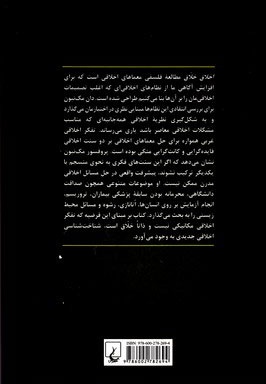 اخلاق خلاق مطالعهٔ فلسفی معماهای اخلاقی است که برای
افزایش آگاهی ما از نظام‌های اخلاقی‌ای که اغلب تصمیمات
اخلاقی‌مان را بر آن‌ها بنا می‌کنیم طراحی شده است. دان مک‌نیون
برای بررسی انتقادی این نظام‌ها مبنایی نظری در اختیارمان می‌گذارد
و به شکل‌گیری نظریهٔ اخلاقی همه‌جانبه‌ای که مناسب
مشکلات اخلاقی معاصر باشد یاری می‌رساند. تفکر اخلاقی
غربی همواره برای حل معماهای اخلاقی بر دو سنت اخلاقی
فایده‌گرایی و کانت‌گرایی متکی بوده است. پروفسور مک‌نیون
نشان می‌دهد که اگر این سنت‌های فکری به نحوی منسجم با
یکدیگر ترکیب نشوند، پیشرفت واقعی در حل مسائل اخلاقی
مدرن ممکن نیست. او موضوعات متنوعی همچون صداقت
دانشگاهی، محرمانه بودن سابقهٔ پزشکی بیماران، تروریسم،
انجام آزمایش بر روی انسان‌ها، اتانازی، رشوه و مسائل محیط
زیستی را به بحث می‌گذارد. کتاب بر مبنای این فرضیه که تفکر
اخلاقی مکانیکی نیست و ذاتاً خلاق است، شناخت‌شناسی
اخلاقی جدیدی به وجود می‌آورد.
ISBN: 978-600-278-269-4
9 786002 782694